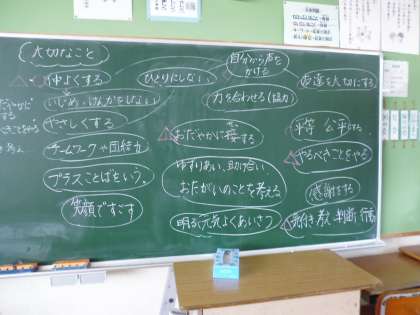 (大切なこと)
自分から声を
かける
仲よくする
ひとりにしない
友達を大切にする
いじめ・けんかをしない
力を合わせる(協力)
やさしくする
おだやかに接する
平等 公平にする
チームワークや団結力
やるべきことをやる
ゆずりあい、助け合い
おたがいのことを考える
プラスことばをいう
感謝をする
笑顔ですごす
明るく元気よくあいさつ
気付き 考え 判断 行動